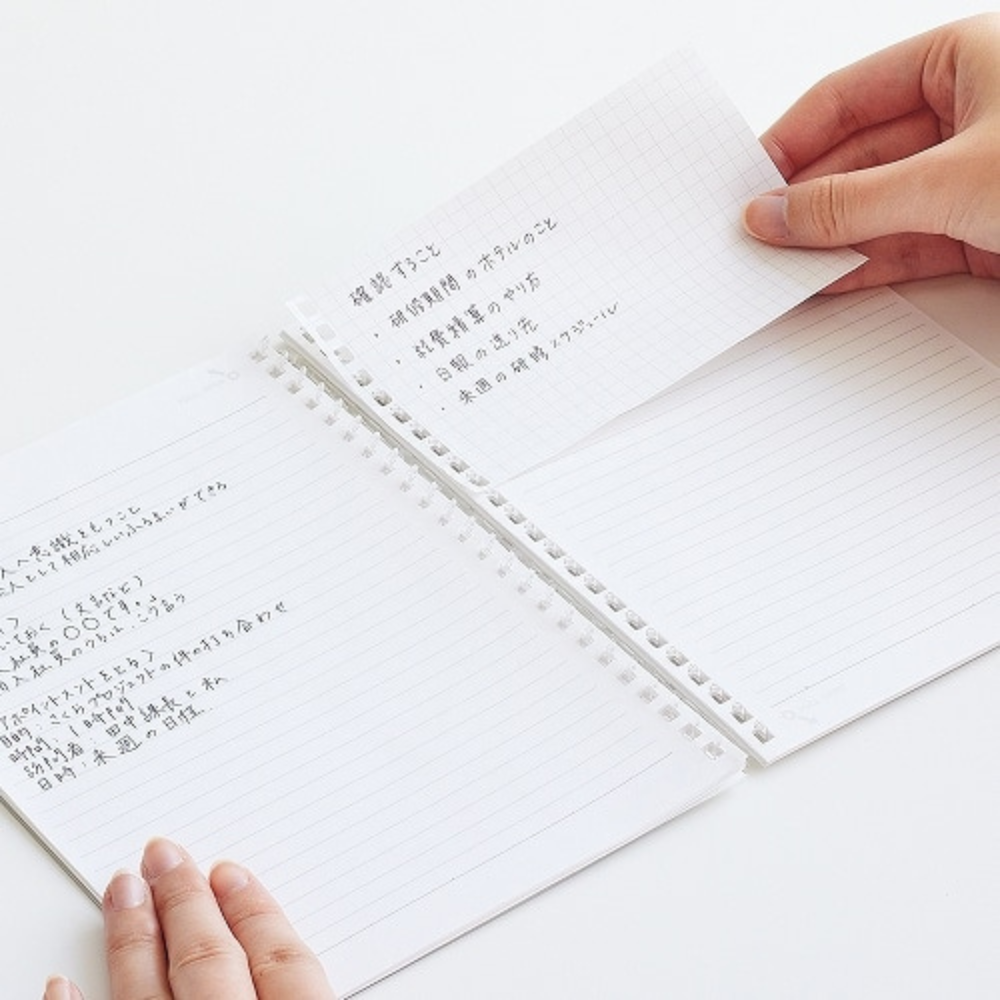 意識をもつこと
人として相応しいふるまいができる
いておく(文書など)
入社員の〇〇です。」
アポイントメントをとる>
目的:さくらプロジェクトの件の打ち合わせ
時間:1時間
訪問者:田中課長と私
日時:来週の日程..
確認すること
・研修期間のホテルのこと
・経費精算のやり方
・日報の送り先
・来週の研修スケジュール